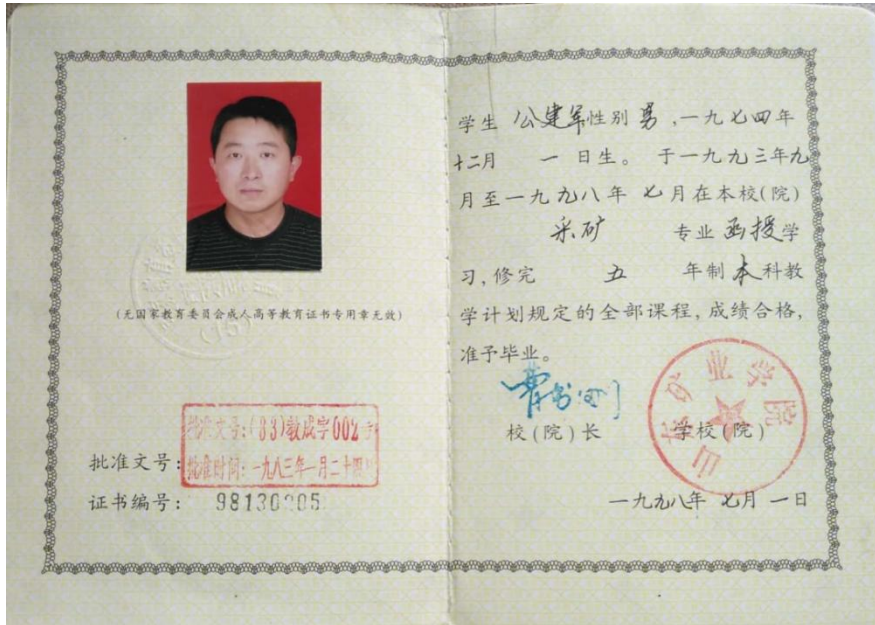 (无国家教育委员会成人高等教育证书专用章无效)
批准文号:(83)教成字002号
批准时间:一九八三年一月二十四日
批准文号:
证书编号: 98130205
学生 公建军 性别 男 ,一九七四年
十二月 一 日生。 于一九九三年九
月至一九九八年 七月在本校(院)
采矿 专业 函授 学
习,修完 五 年制 本 科教
学计划规定的全部课程,成绩合格,
准予毕业。
校(院)长 学校(院)
山 矿业学院
一九九八年 七月 一日